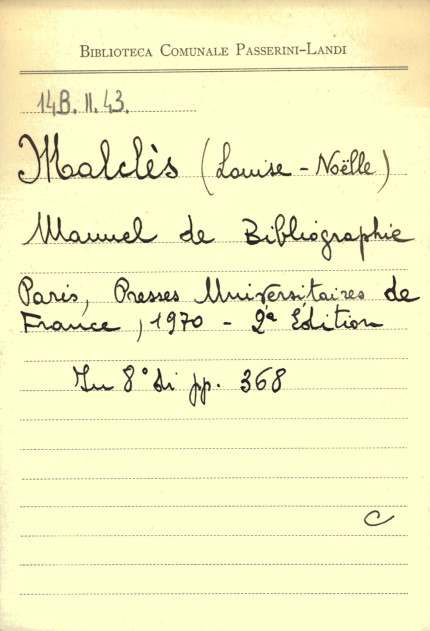 BIBLIOTECA COMUNALE PASSERINI-LANDI
14B. II. 43.
Malclès (Louise-Noëlle)
Manuel de Bibliographie
Paris, Presses Universitaires de
France, 1970 - 2ª Edition
In 8° di pp. 368
C